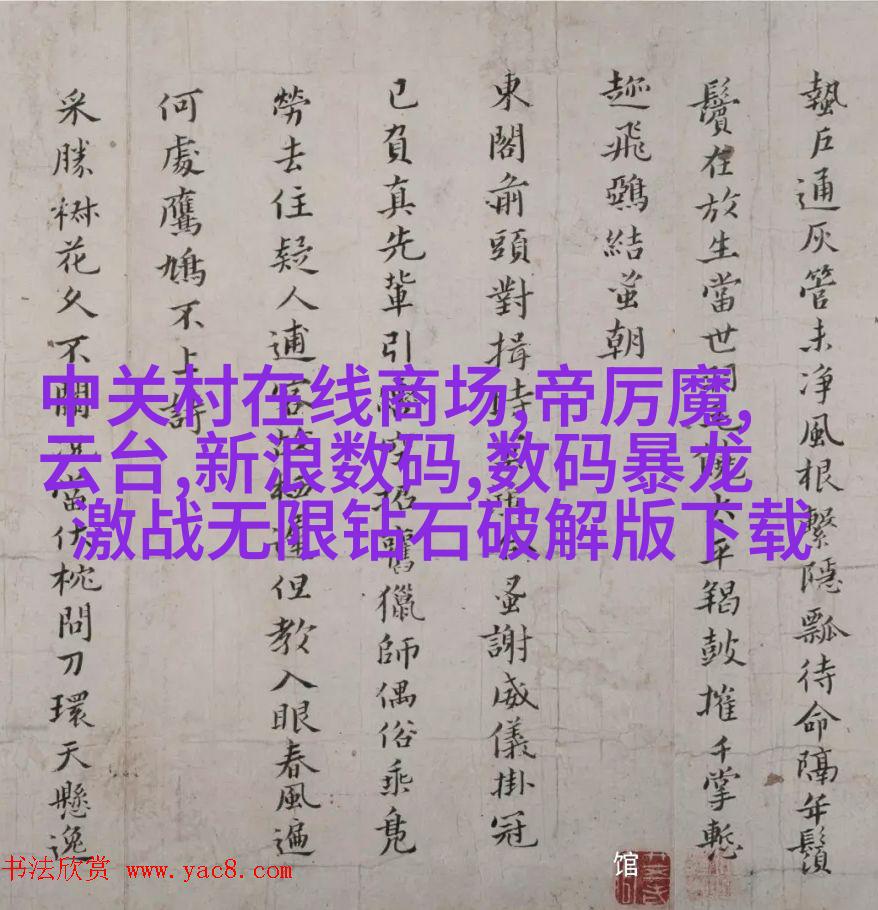 蟄户通灰管未净風根繫隱瓢待命隔年鬚
鬢在放生當世大平羯鼓摧千掌慙
趂飛鵶結蚩朝
東閣前頭對揖時蚤謝威儀掛冠
已負真先輩引舊獵師偶俗乘鳬
勞去住疑人逋客但教入眼春風遍
何處鷹鳩不上詩
采勝樹花久不關當伏枕問刀環天懸逸
中关村在线商场,帝厉魔,
云台,新浪数码,数码暴龙
激战无限钻石破解版下载
馆
书法欣赏 www.yac8.com